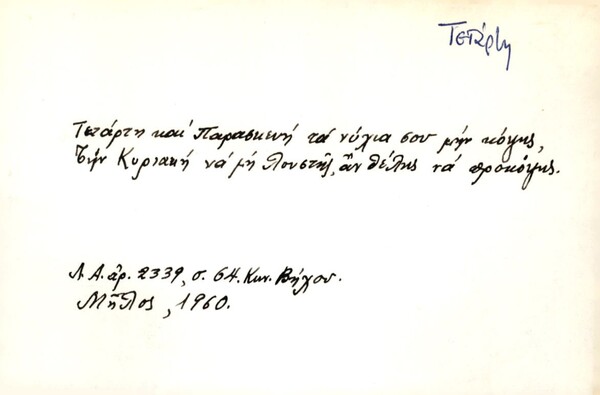 Τετάρτη
Τετάρτη καί Παρασκευή τά νύχια σου μήν κόψης,
τήν Κυριακή νά μή λουστῆς, ἄν θέλης νά προκόψης.
Λ.Α. ἀρ. 2339, σ. 64. Κων. Βήχου.
Μῆλος, 1960.